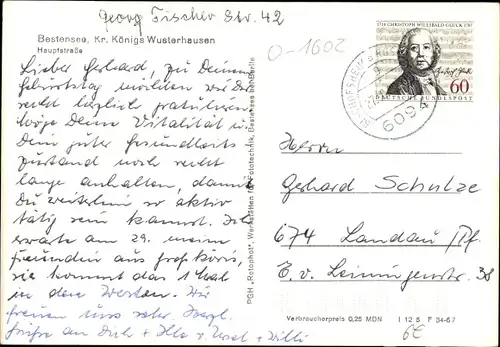 Georg Fischer Str. 42
Bestensee, Kr. Königs Wusterhausen
Hauptstraße
O-1602
Lieber Gerhard, zu Deinem
Geburtstag möchten wir Dir
recht herzlich gratulieren.
Möge Deine Vitalität u.
Dein guter Gesundheits
zustand noch recht
lange anhalten, damit
Du weiterhin so aktiv
tätig sein kannst. Ich
erwarte am 29. meine
Freundin aus
sie kommt das 1. Mal
in den Westen. Wir
freuen uns sehr. Herzl.
Grüße an Dich + Ilse v. Ursel + Willi
PGH „Rotophot", Werkstätten für Fototechnik, Bestensee bei Berlin
1714 CHRISTOPH WILLIBALD GLUCK 1787
60
DEUTSCHE BUNDESPOST
BISCHOFSHEIM
6094
Herrn
Gerhard Schulze
674 Landau/Pf.
E. v. Leiningenstr. 38
Verbraucherpreis 0,25 MDN I 12 5 F 34-67
6€